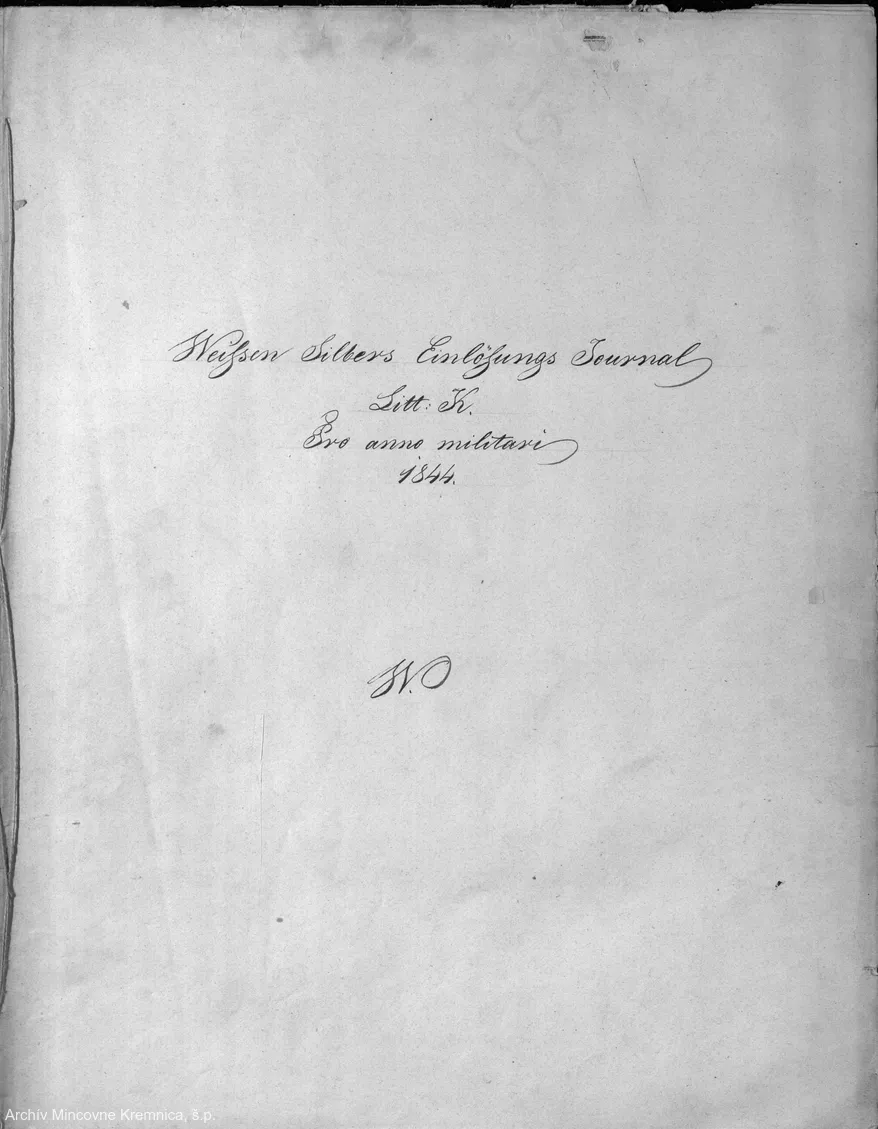 Weißen Silbers Einlösungs Journal
Litt: K.
Pro anno militari
1844.
W.
Archiv Mincovne Kremnica, š.p.